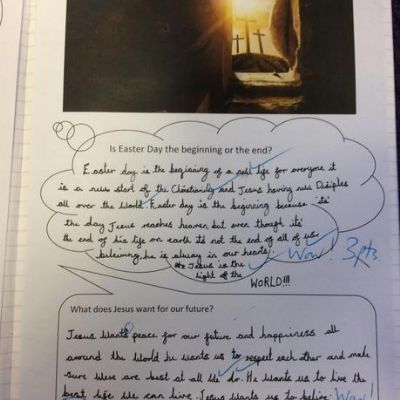 Is Easter Day the beginning or the end?
Easter day is the begining of a new life for everyone it
is a new start of the Christianity and Jesus having new Disiples
all over the World. Easter day is the beginning because 'its'
the day Jesus reaches heaven but even though its'
the end of his life on earth its not the end of all of us
believing he is alway in our hearts. Wow! 3pts
Jesus is the
light of the
WORLD!!!
What does Jesus want for our future?
Jesus Wants peace for our future and happiness all
around the World he wants us to respect each other and make
sure We are best at all We do. He Wants us to live the
best life We can live. Jesus Wants us to believe Wow!